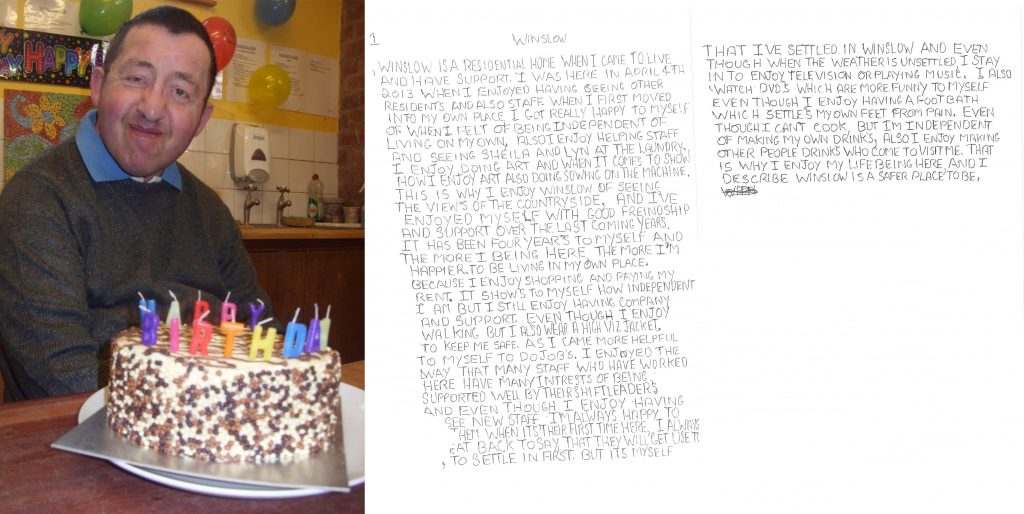 HAPPY
HAPPY
BIRTHDAY
1
WINSLOW
WINSLOW IS A RESIDENTIAL HOME WHEN I CAME TO LIVE
AND HAVE SUPPORT. I WAS HERE IN APRIL 4TH
2013 WHEN I ENJOYED HAVING SEEING OTHER
RESIDENTS AND ALSO STAFF. WHEN I FIRST MOVED
INTO MY OWN PLACE I GOT REALLY HAPPY TO MYSELF
OF WHEN I FELT OF BEING INDEPENDENT OF
LIVING ON MY OWN, ALSO I ENJOY HELPING STAFF
AND SEEING SHEILA AND LYN AT THE LAUNDRY.
I ENJOY DOING ART AND WHEN IT COMES TO SHOW
HOW I ENJOY ART ALSO DOING SOWING ON THE MACHINE.
THIS IS WHY I ENJOY WINSLOW OF SEEING
THE VIEWS OF THE COUNTRYSIDE, AND I'VE
ENJOYED MYSELF WITH GOOD FREINDSHIP
AND SUPPORT OVER THE LAST COMING YEARS.
IT HAS BEEN FOUR YEAR'S TO MYSELF AND
THE MORE I BEING HERE THE MORE I'M
HAPPIER TO BE LIVING IN MY OWN PLACE.
BECAUSE I ENJOY SHOPPING AND PAYING MY
RENT. IT SHOW'S TO MYSELF HOW INDEPENDENT
I AM BUT I STILL ENJOY HAVING COMPANY
AND SUPPORT. EVEN THOUGH I ENJOY
WALKING BUT I ALSO WEAR A HIGH VIZ JACKET,
TO KEEP ME SAFE. AS I CAME MORE HELPFUL
TO MYSELF TO DO JOB'S. I ENJOYED THE
WAY THAT MANY STAFF WHO HAVE WORKED
HERE HAVE MANY INTRESTS OF BEING
SUPPORTED WELL BY THEIR SHIFTLEADERS
AND EVEN THOUGH I ENJOY HAVING
SEE NEW STAFF. I'M ALWAYS HAPPY TO
THEM WHEN ITS THEIR FIRST TIME HERE. I ALWAYS
EAT BACK TO SAY THAT THEY WILL GET USE TO
TO SETTLE IN FIRST. BUT ITS MYSELF
THAT I'VE SETTLED IN WINSLOW AND EVEN
THOUGH WHEN THE WEATHER IS UNSETTLED I STAY
IN TO ENJOY TELEVISION OR PLAYING MUSIC. I ALSO
WATCH DVD'S WHICH ARE MORE FUNNY TO MYSELF
EVEN THOUGH I ENJOY HAVING A FOOT BATH
WHICH SETTLE'S MY OWN FEET FROM PAIN. EVEN
THOUGH I CAN'T COOK, BUT I'M INDEPENDENT
OF MAKING MY OWN DRINKS, ALSO I ENJOY MAKING
OTHER PEOPLE DRINKS WHO COME TO VISIT ME. THAT
IS WHY I ENJOY MY LIFE BEING HERE AND I
DESCRIBE WINSLOW IS A SAFER PLACE TO BE.